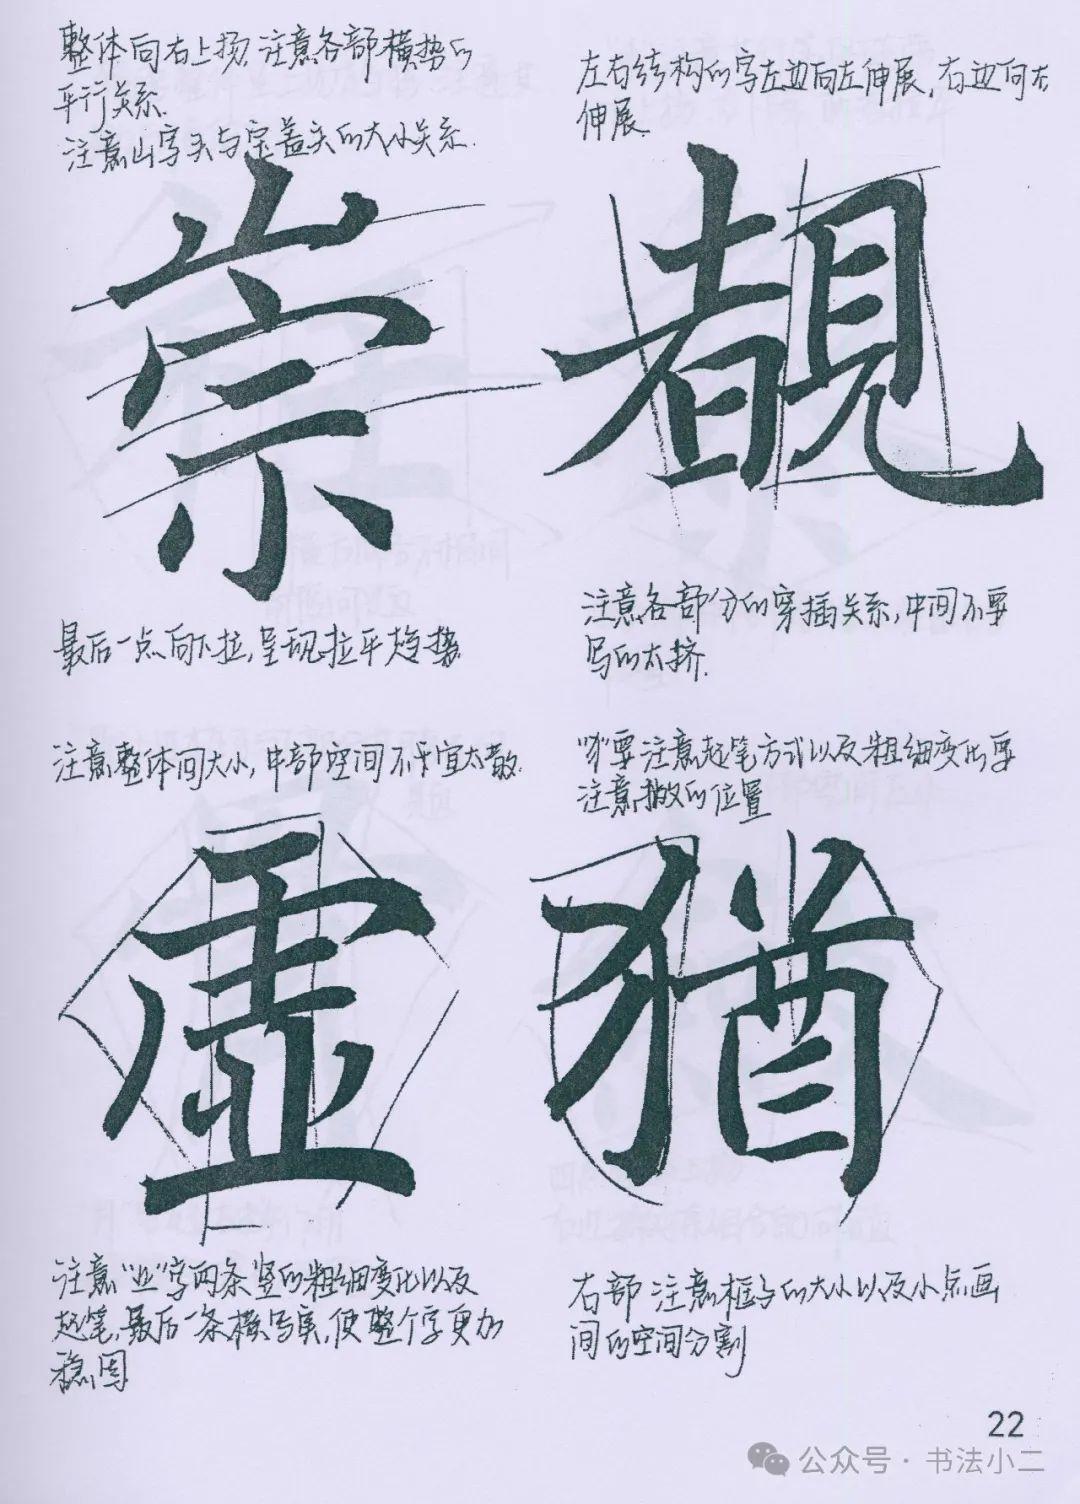 整体向右上扬,注意各部横势的
平行关系.
注意山字头与宝盖头的大小关系.
崇
最后一点向下拉,呈现拉平趋势.
左右结构的字左边向左伸展,右边向右
伸展.
覩
注意各部分的穿插关系,中间不要
写的太挤.
注意整体间大小,中部空间不宜太散.
虚
注意"业"字两条竖的粗细变化以及
起笔,最后一条横写实,使整个字更加
稳固
"犭"要注意起笔方式以及粗细变化要
注意撇的位置
猶
右部注意框子的大小以及小点画
间的空间分割
22
公众号·书法小二